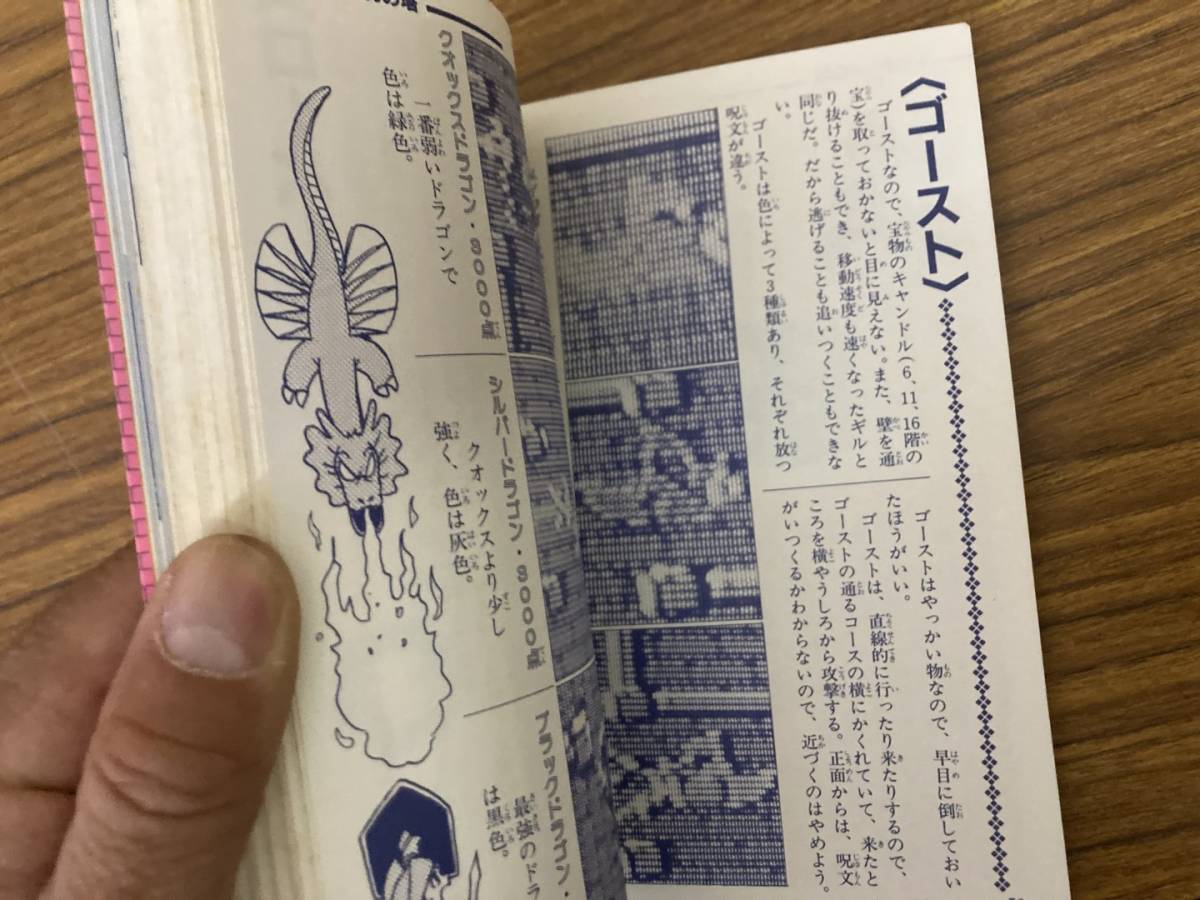 〈ゴースト〉
ゴーストなので、宝物のキャンドル(6、11、16階の
宝)を取っておかないと目に見えない。また、壁を通
り抜けることもでき、移動速度も速くなったギルと
同じだ。だから逃げることも追いつくこともできな
い。
ゴーストは色によって3種類あり、それぞれ放つ
呪文が違う。
ゴーストはやっかい物なので、早目に倒しておい
たほうがいい。
ゴーストは、直線的に行ったり来たりするので、
ゴーストの通るコースの横にかくれていて、来たと
ころを横やうしろから攻撃する。正面からは、呪文
がいつくるかわからないので、近づくのはやめよう。
の塔
クオックスドラゴン・9000点
一番弱いドラゴンで
色は緑色。
シルバードラゴン・9000点
クオックスより少し
強く、色は灰色。
ブラックドラゴン・
最強のドラ
は黒色。